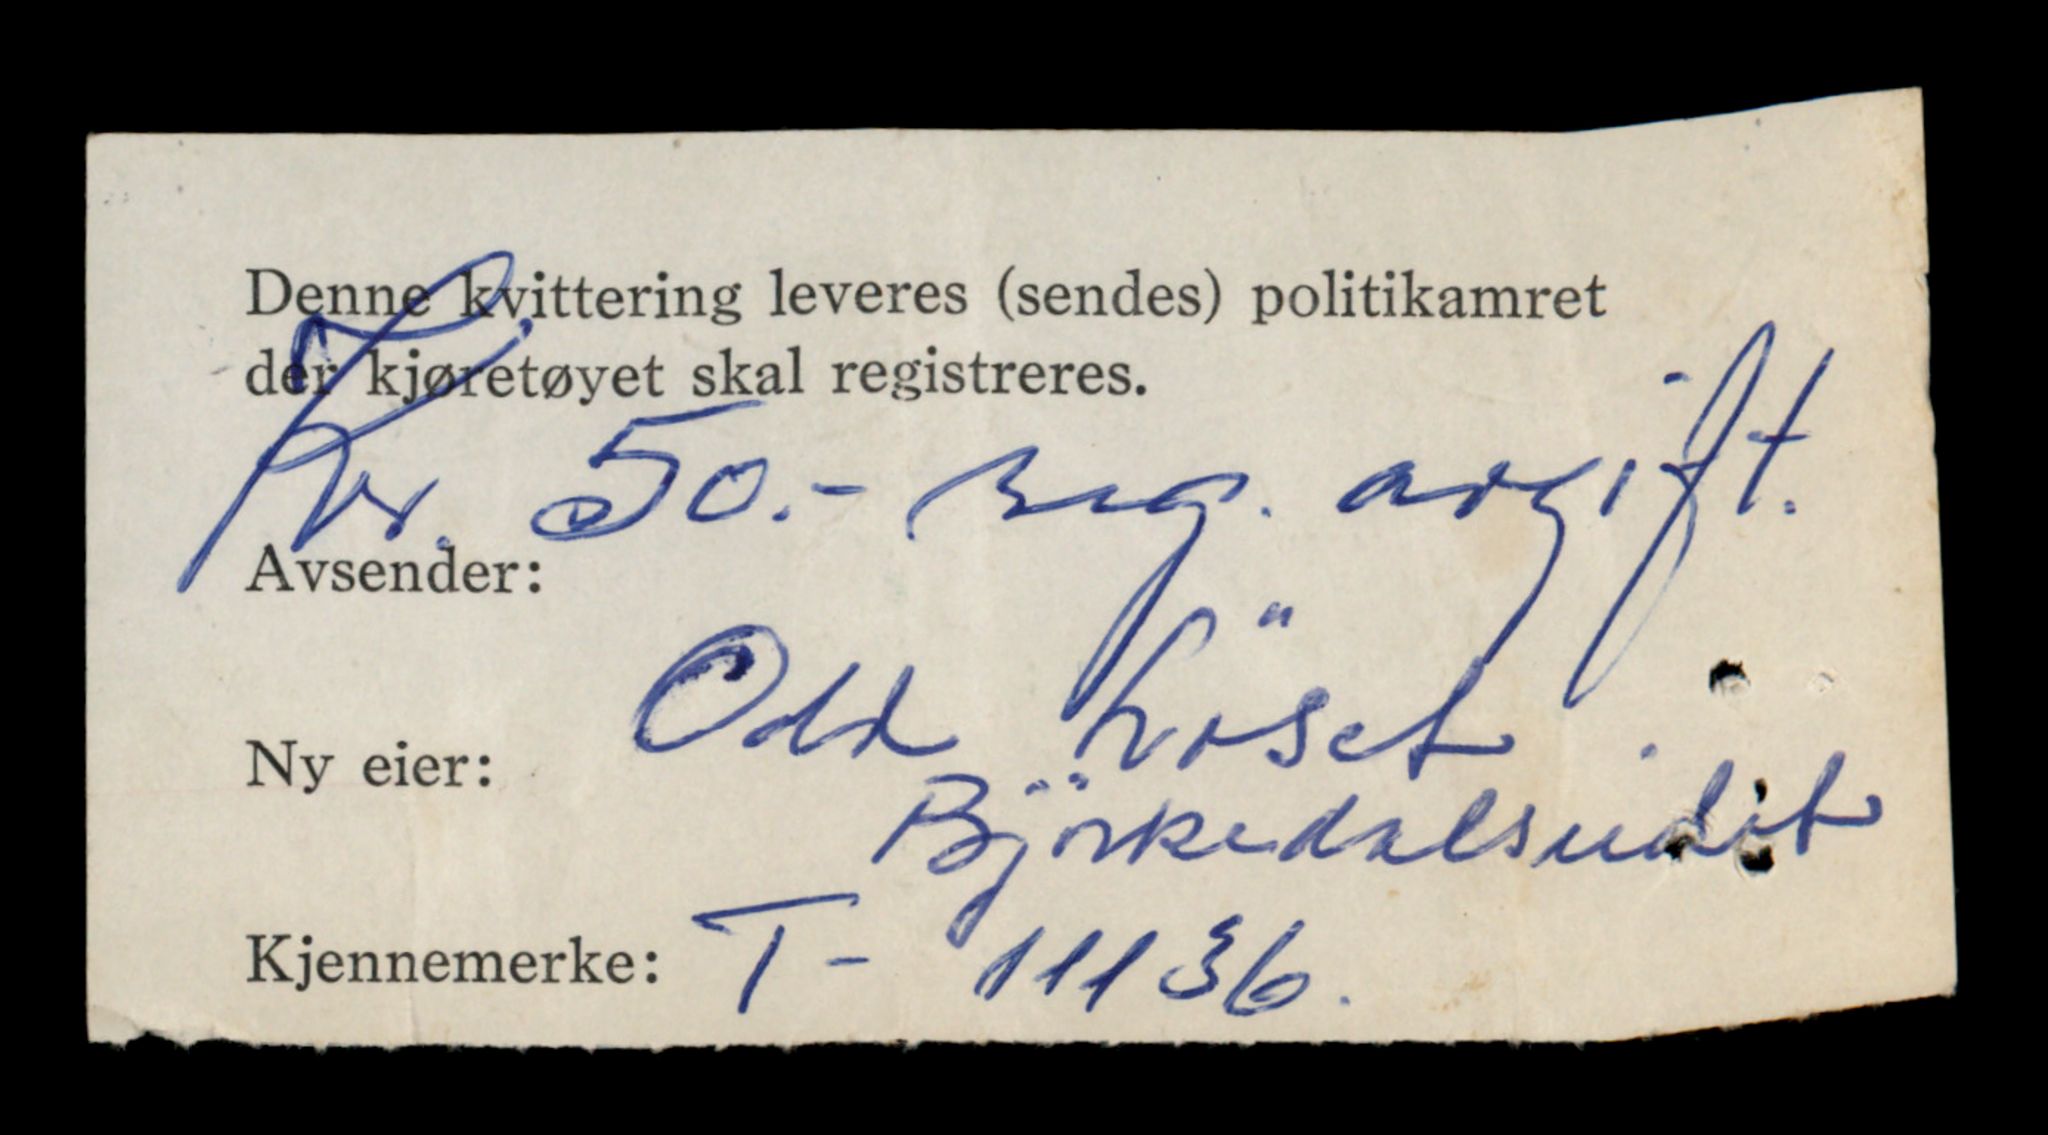 Denne kvittering leveres (sendes) politikamret
der kjøretøyet skal registreres.
Kr. 50.- reg. avgift.
Avsender:
Odd Löset
Ny eier:
Björkedalseidet
Kjennemerke: T- 11136.